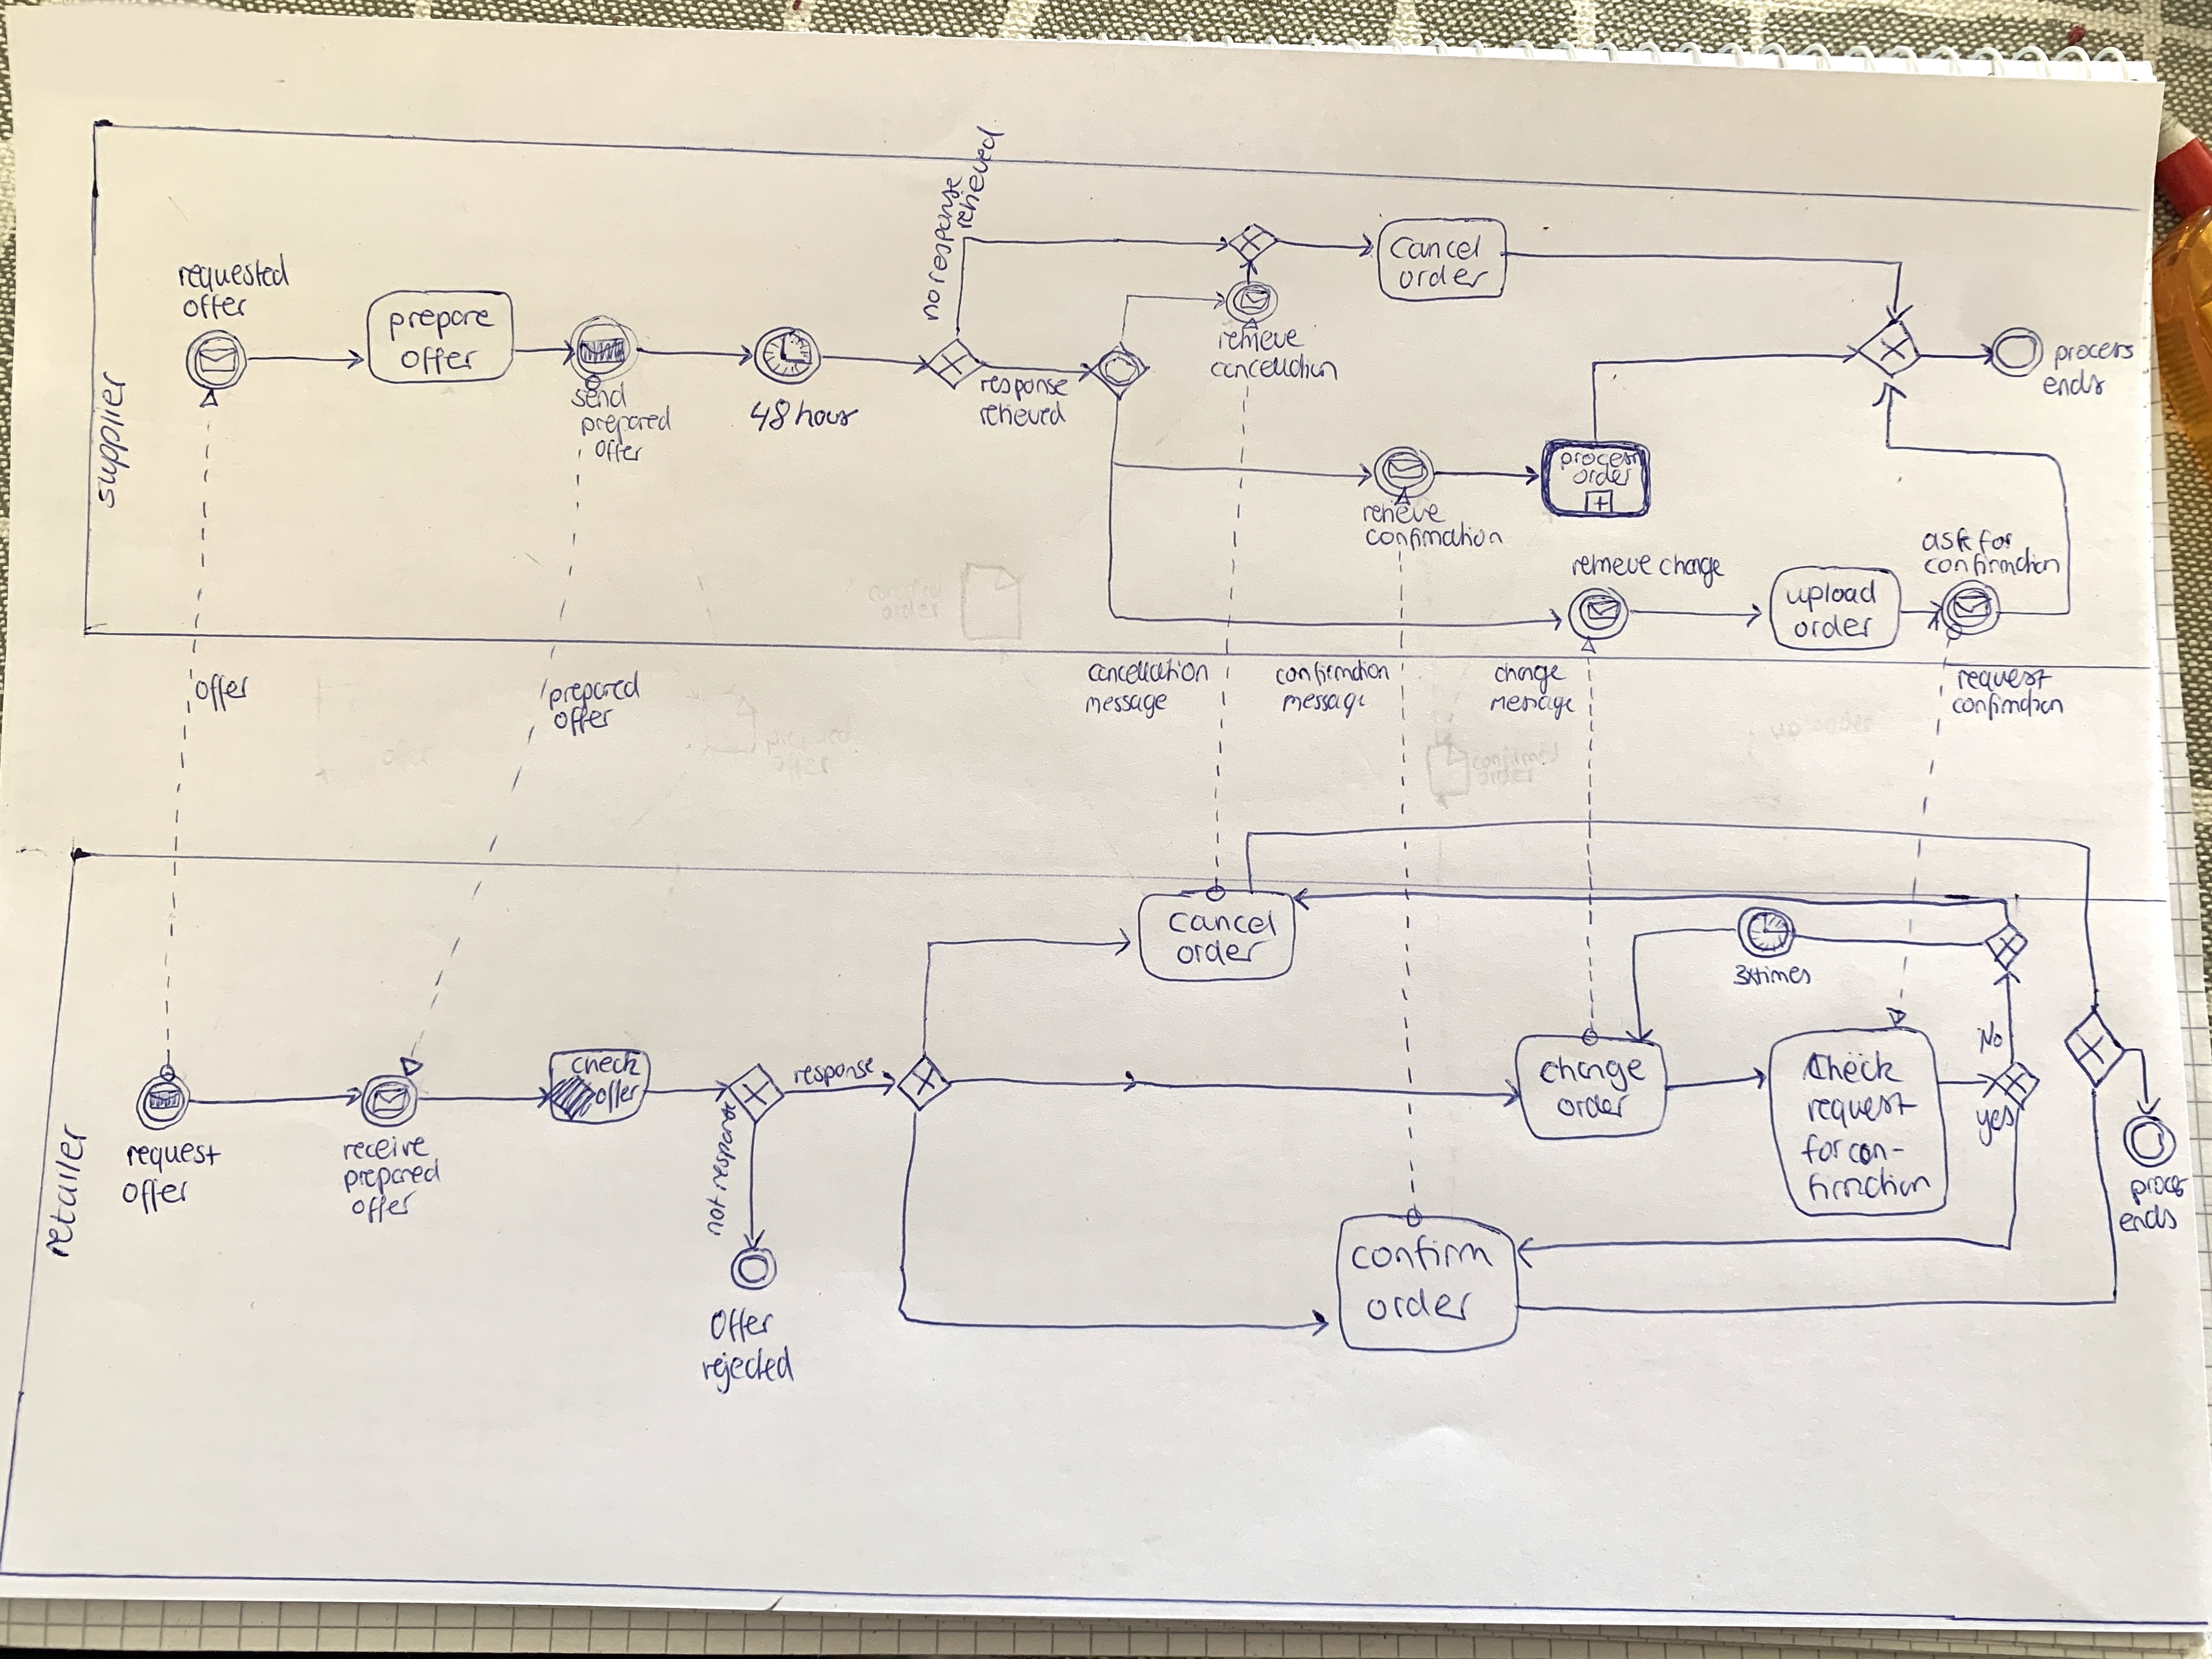 supplier
requested
offer
prepare
offer
send
prepared
offer
48 hour
no response
retrieved
response
retrieved
cancel
order
retrieve
cancellation
retrieve
confirmation
process
order
retrieve change
upload
order
ask for
confirmation
process
ends
offer
prepared
offer
cancellation
message
confirmation
message
change
message
request
confirmation
retailer
request
offer
receive
prepared
offer
check
offer
response
not response
Offer
rejected
cancel
order
3xtimes
change
order
Check
request
for con-
firmation
No
yes
confirm
order
proces
ends